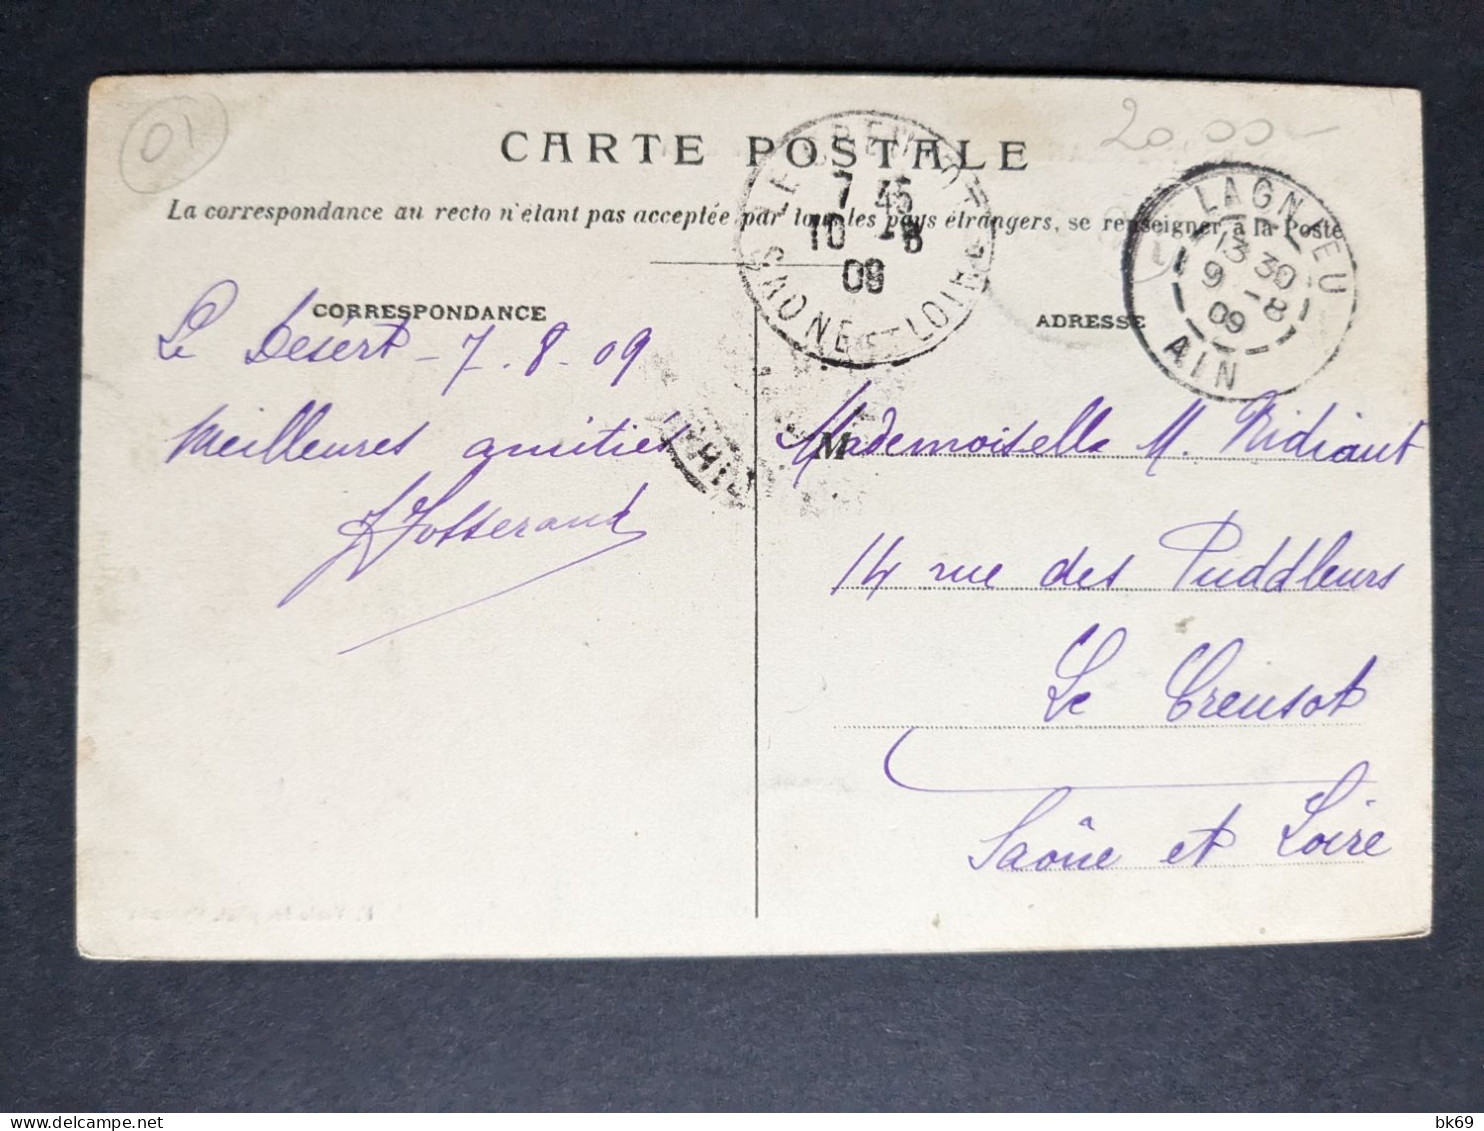 01
20,00
CARTE POSTALE
La correspondance au recto n'étant pas acceptée par tous les pays étrangers, se renseigner à la Poste
LE CREUSOT
7 45
10 - 8
09
SAONE ET LOIRE
LAGNIEU
13 30
9 - 8
09
AIN
CORRESPONDANCE
Le Désert - 7. 8 - 09
Meilleures amitiés
J Josserand
ADRESSE
M
Mademoiselle M.
14 rue des Puddleurs
Le Creusot
Saône et Loire
bk69